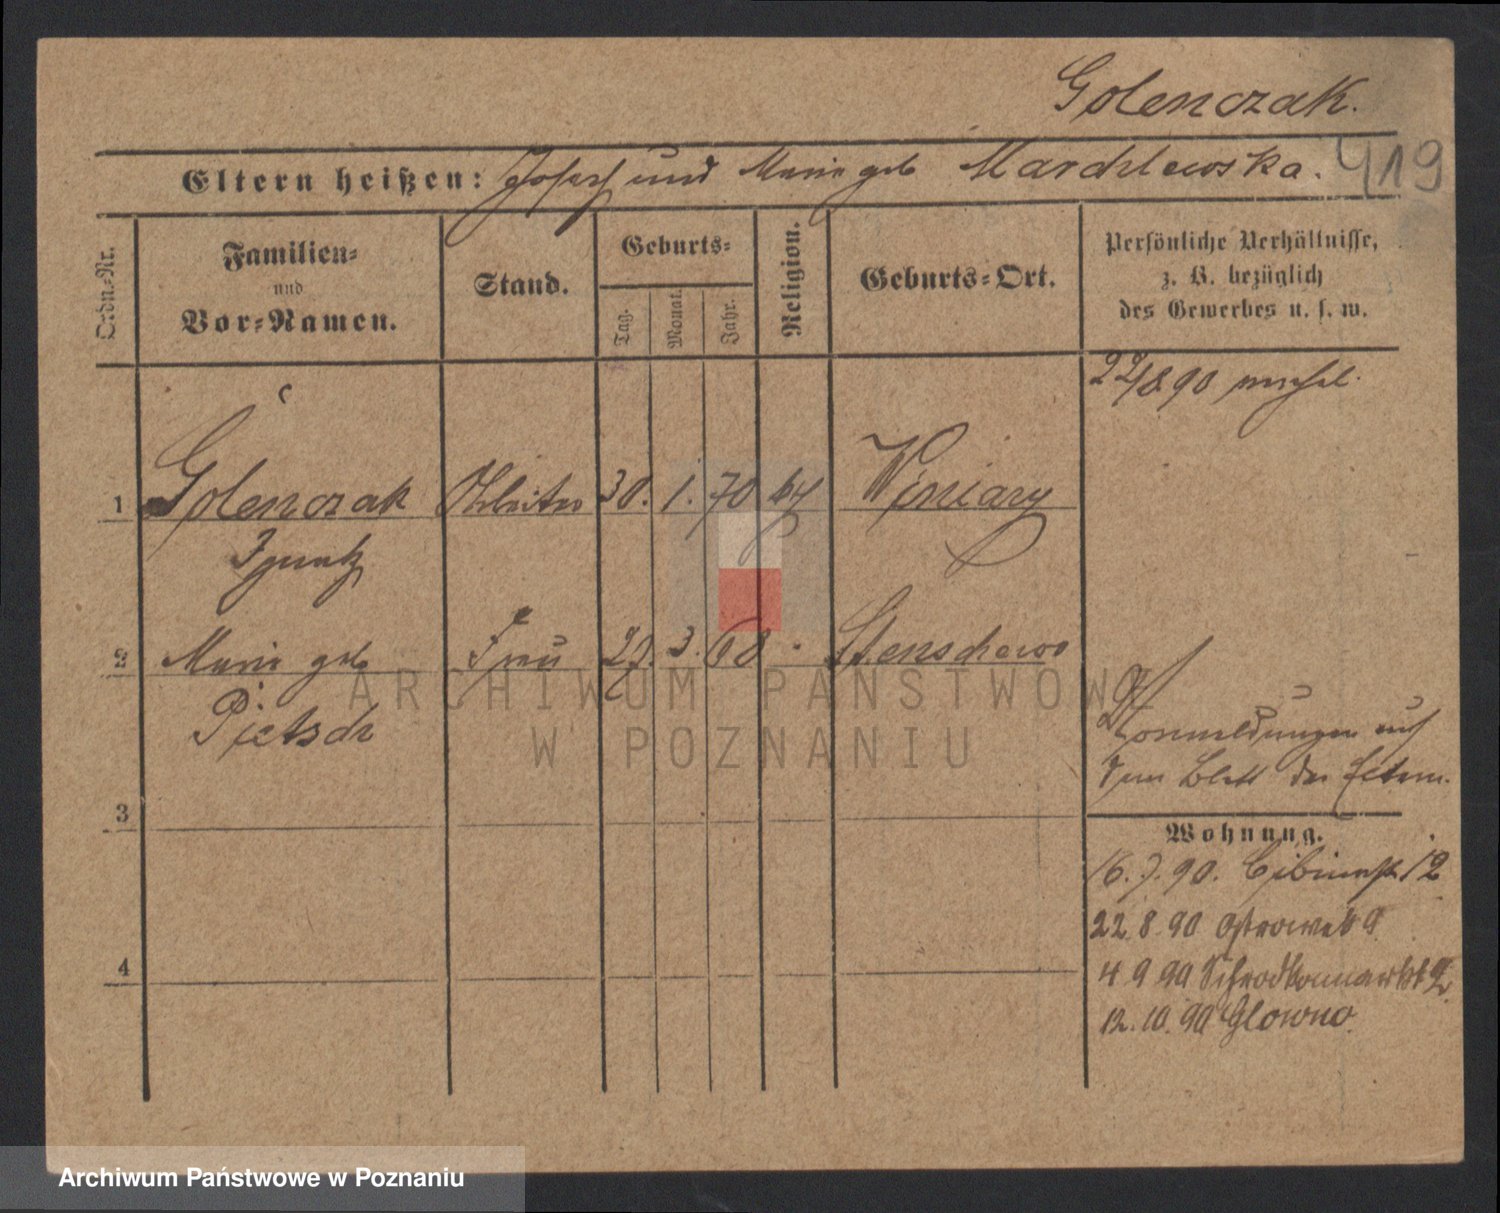 Golenczak.
419
Eltern heißen: Josef und Marie geb Mardzlewska.
Ordn.-Nr.
Familien-
und
Vor-Namen.
Stand.
Geburts-
Tag.
Monat.
Jahr.
Religion.
Geburts-Ort.
Persönliche Verhältnisse,
z. B. bezüglich
des Gewerbes u. s. w.
22/8 90
1 Golenczak Arbeiter 30. 1. 70 kth Winiary
Ignatz
2 Marie geb Frau 29. 3. 68 Stenschewo
Pietsch
Vormeldungen auf
dem Blatt der Eltern.
3
Wohnung.
16.7.90. 12
22.8.90 Ostrowek 9
4
4.9.90 Schrodkamarkt 2
12.10.90 Glowno.
ARCHIWUM PAŃSTWOWE
W POZNANIU
Archiwum Państwowe w Poznaniu